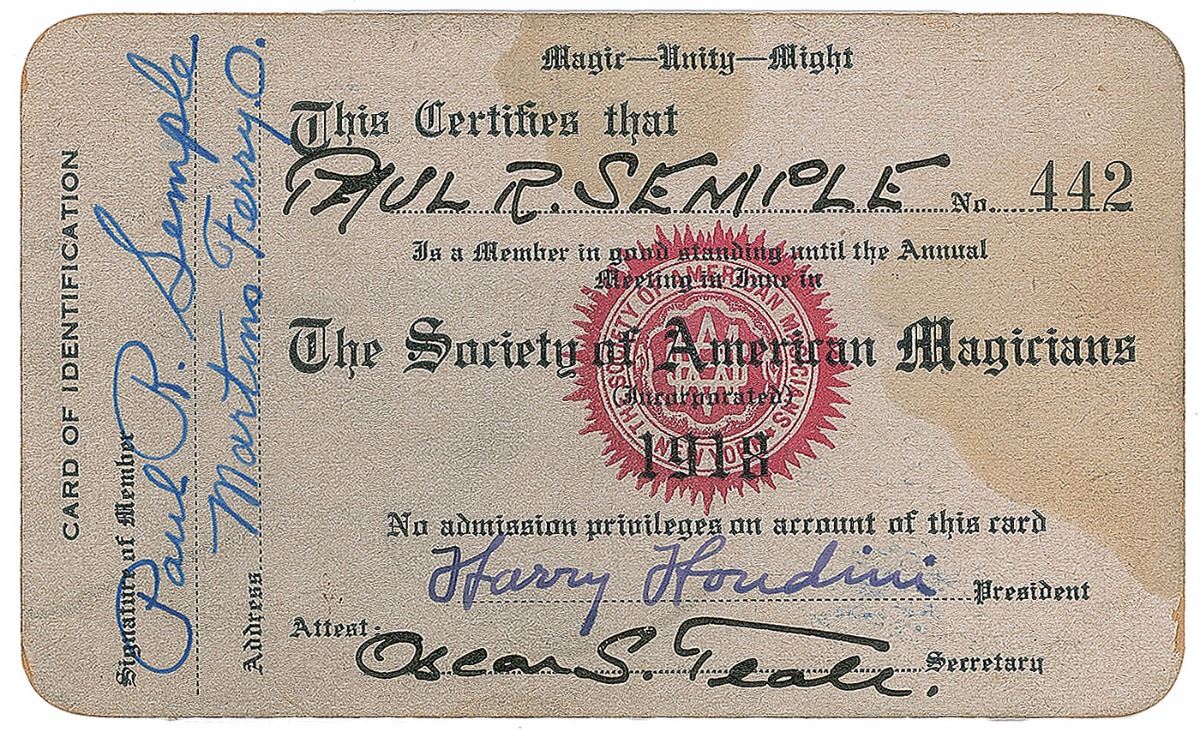 CARD OF IDENTIFICATION
Signature of Member
Paul R. Semple
Address
Martins Ferry. O.
Magic—Unity—Might
This Certifies that
PAUL R. SEMPLE No. 442
Is a Member in good standing until the Annual
Meeting in June in
The Society of American Magicians
(Incorporated)
1918
THE SOCIETY OF AMERICAN MAGICIANS
NEW YORK
No admission privileges on account of this card
Harry Houdini President
Attest:
Oscar S. Teale. Secretary